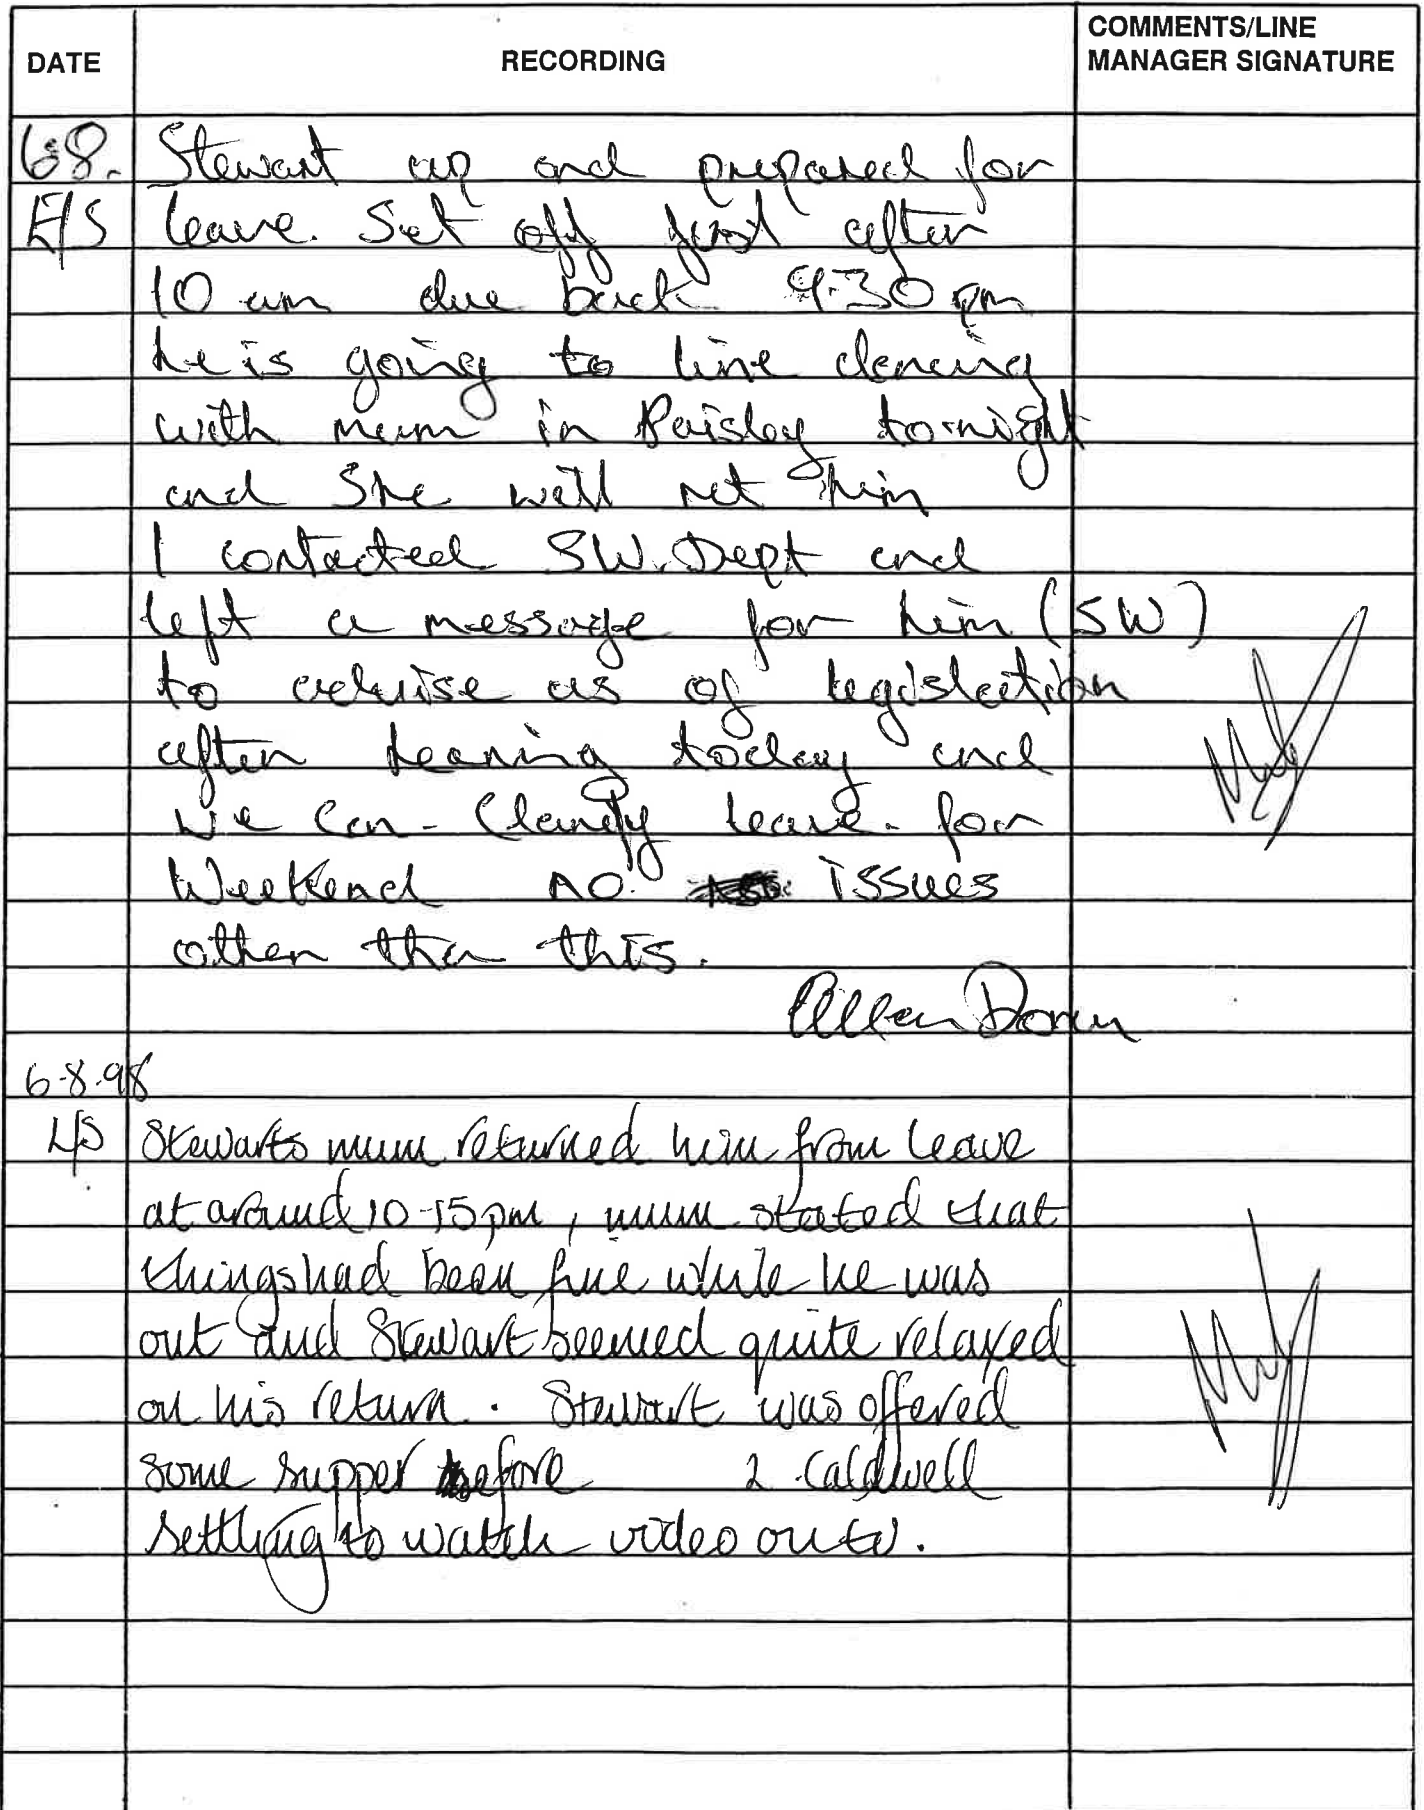 DATE RECORDING COMMENTS/LINE MANAGER SIGNATURE
6.8. Stewart up and prepared for
E/S leave. Set off just after
10 am due back 9.30 pm
he is going to line dancing
with mum in Paisley to-night
and She will ret him
I contacted SW. Dept and
left a message for him (SW)
to advise us of legislation
after hearing today and
we can clarify leave for
Weekend no issues
other than this.
Allan Doran
6.8.98
L/S Stewarts mum returned him from leave
at around 10-15pm, mum stated that
things had been fine while he was
out and Stewart seemed quite relaxed
on his return. Stewart was offered
some supper before Caldwell
settling to watch video on tv.